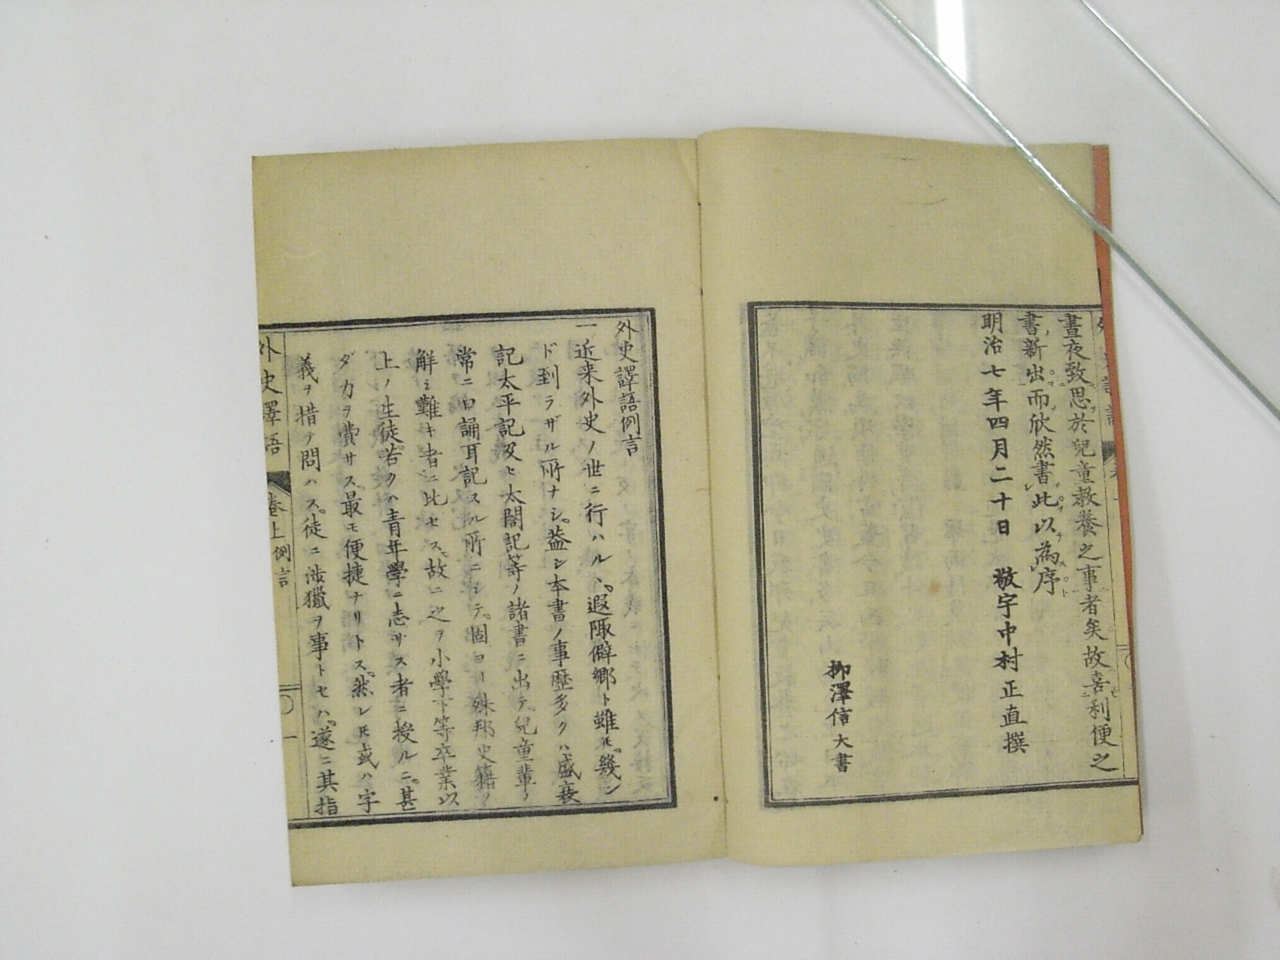 晝夜致思於兒童教養之事者矣故喜利便之
書新出而欣然書此以為序
明治七年四月二十日 敬宇中村正直撰
柳澤信大書
外史譯語例言
一近来外史ノ世ニ行ハルヽ。遐陬僻郷ト雖モ。幾ン
ド到ラザル所ナシ。葢シ本書ノ事歴多クハ盛衰
記太平記及ヒ太閤記等ノ諸書ニ出テ。兒童輩ノ
常ニ口誦耳記スル所ニシテ。固ヨリ殊邦史籍ノ
解シ難キ者ニ比セス。故ニ之ヲ小學下等卒業以
上ノ生徒。若クハ青年學ニ志ザス者ニ授ルニ。甚
ダ力ヲ費サス。最モ便捷ナリトス。然レモ或ハ字
義ヲ措テ問ハス。徒ニ渉獵ヲ事トセハ。遂ニ其指
外史譯語 卷上例言 一